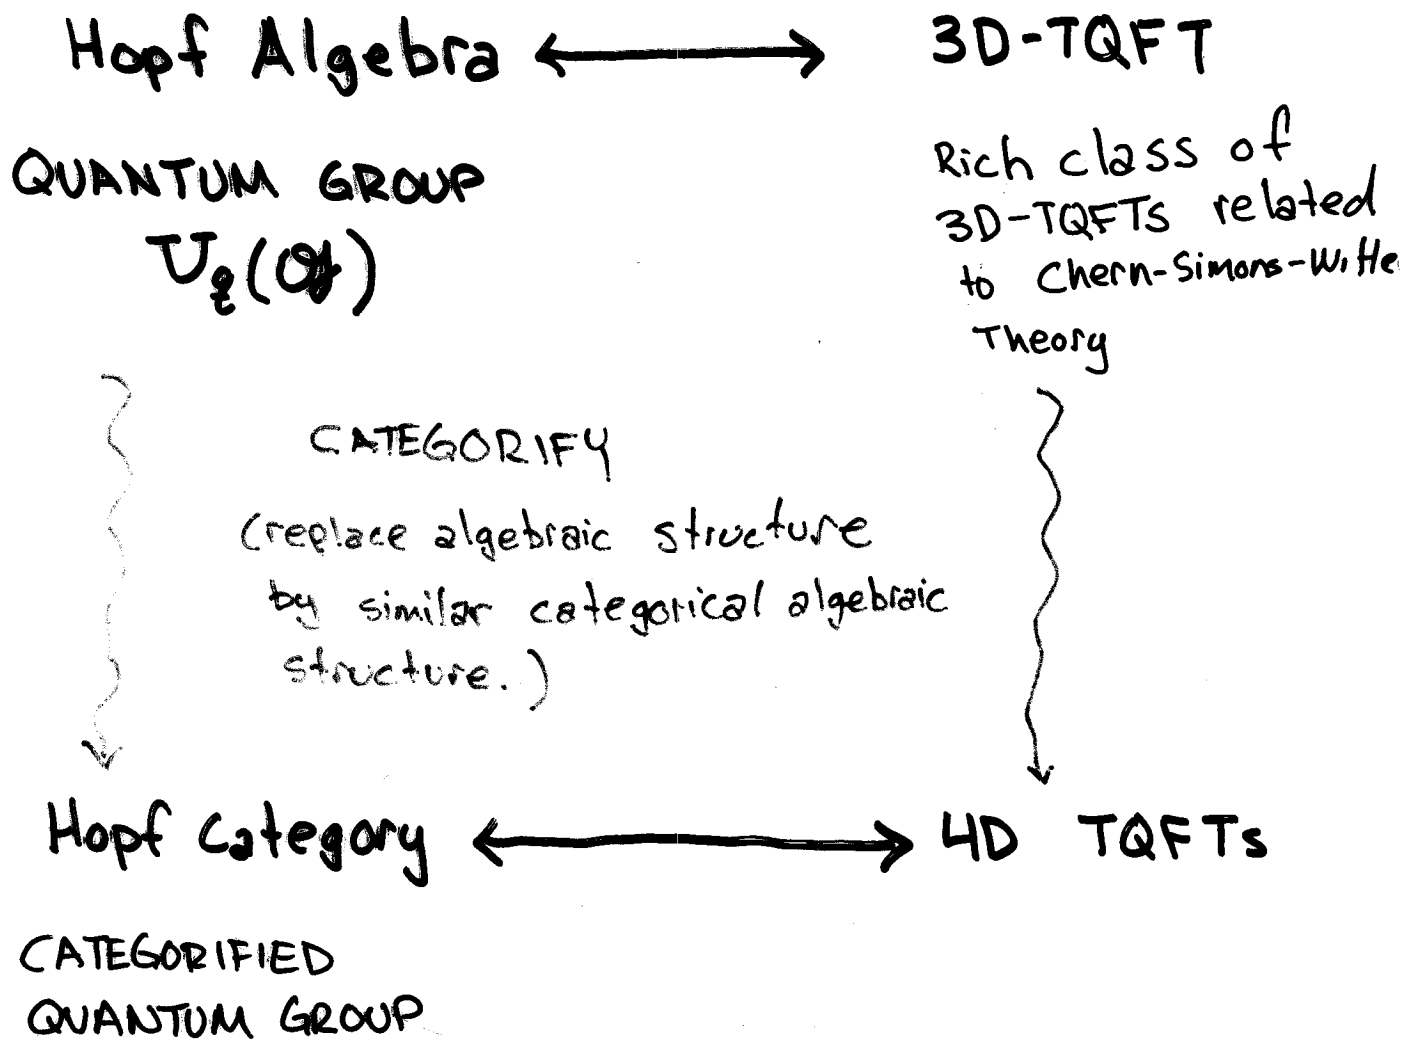 Hopf Algebra ⟷ 3D-TQFT
QUANTUM GROUP
U_q(𝔤)
Rich class of
3D-TQFTs related
to Chern-Simons-Witte
Theory
CATEGORIFY
(replace algebraic structure
by similar categorical algebraic
structure.)
Hopf Category ⟷ 4D TQFTs
CATEGORIFIED
QUANTUM GROUP